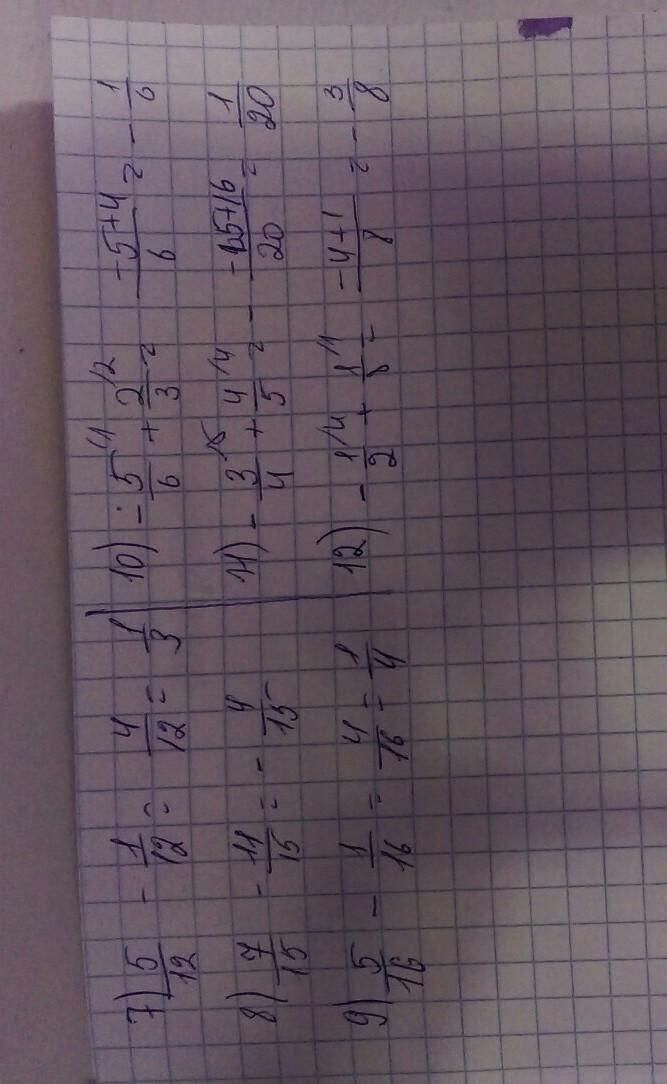 7) 5/12 - 1/12 = 4/12 = 1/3
8) 7/15 - 11/15 = - 4/15
9) 5/16 - 1/16 = 4/16 = 1/4
10) - 5/6 /1 + 2/3 /2 = -5+4/6 = - 1/6
11) - 3/4 /5 + 4/5 /4 = - -15+16/20 = 1/20
12) - 1/2 /4 + 1/8 /1 = -4+1/8 = - 3/8